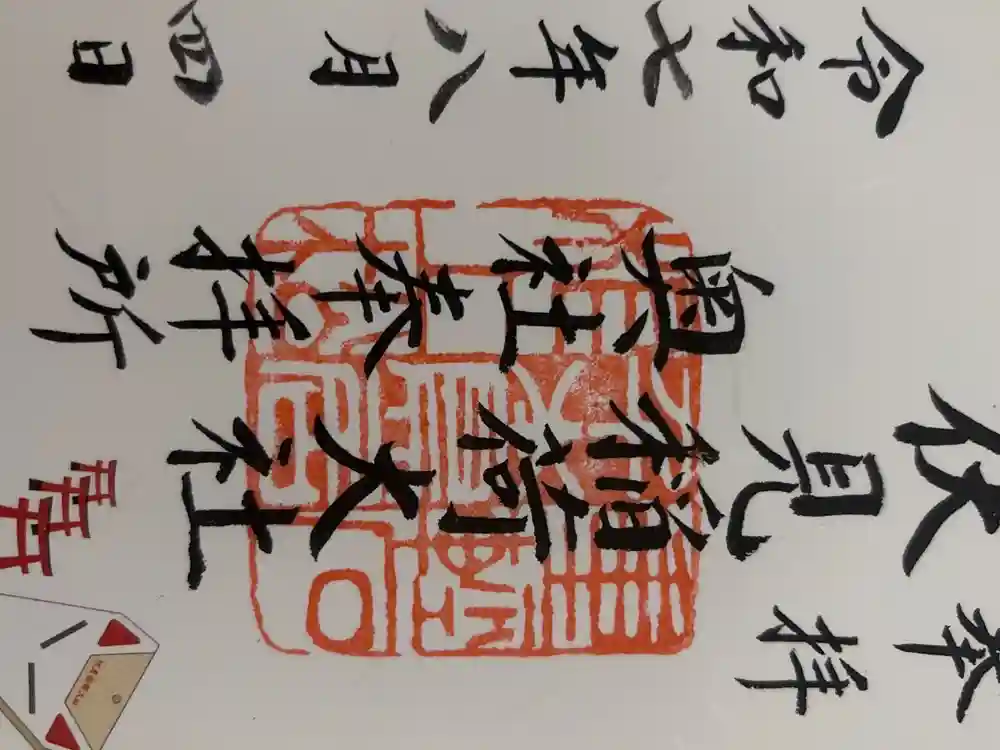 奉拝
伏見稲荷大社
奥社奉拝所
令和七年八月四日